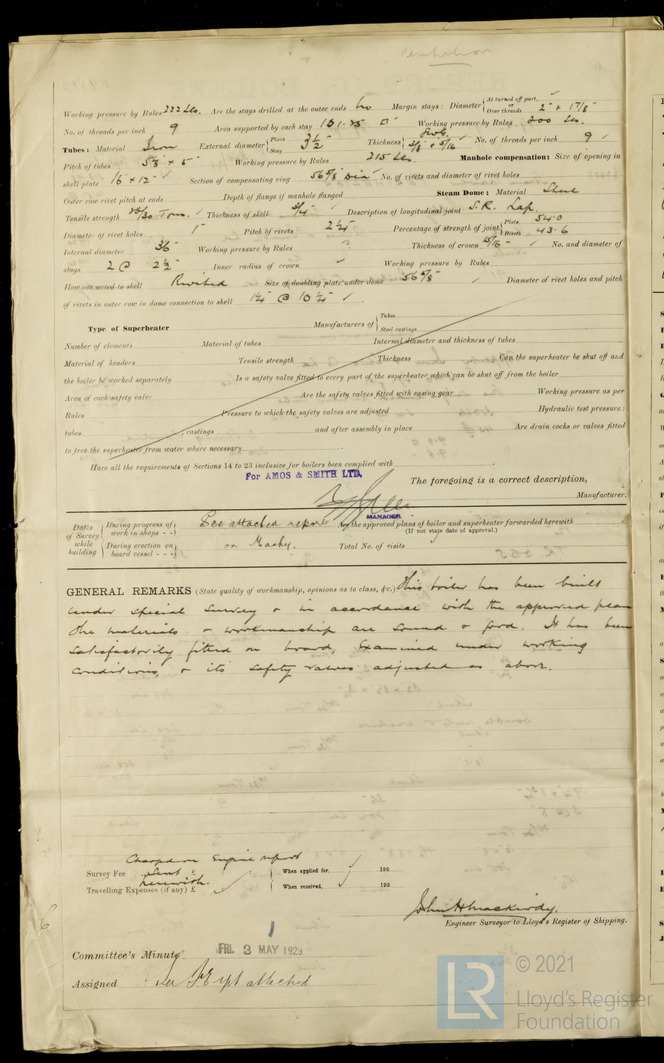 Working pressure by Rules 222 Lbs. Are the stays drilled at the outer ends No Margin stays: Diameter { At turned off part, or Over threads 2" + 1 7/8"
No. of threads per inch 9 Area supported by each stay Working pressure by Rules 200 Lbs.
Tubes: Material Iron External diameter { Plain Stay 3 1/2" Thickness { 5/16 No. of threads per inch 9
Pitch of tubes Working pressure by Rules 215 Lbs Manhole compensation: Size of opening in
shell plate 16" + 12" Section of compensating ring No. of rivets and diameter of rivet holes
Outer row rivet pitch at ends Depth of flange if manhole flanged Steam Dome: Material Steel
Tensile strength Tons. Thickness of shell 3/4" Description of longitudinal joint S.R. Lap.
Diameter of rivet holes 1" Pitch of rivets 2 1/4" Percentage of strength of joint { Plate 54.0 Rivets 43.6
Internal diameter 36" Working pressure by Rules Thickness of crown 15/16" No. and diameter of
stays 2 @ 2 1/2" Inner radius of crown Working pressure by Rules
How connected to shell Riveted Size of doubling plate under dome 56 Diameter of rivet holes and pitch
of rivets in outer row in dome connection to shell 1 1/4" @ 10 1/4"
Type of Superheater Manufacturers of { Tubes Steel castings
Number of elements Material of tubes Internal diameter and thickness of tubes
Material of headers Tensile strength Thickness Can the superheater be shut off and
the boiler be worked separately Is a safety valve fitted to every part of the superheater which can be shut off from the boiler
Area of each safety valve Are the safety valves fitted with easing gear Working pressure as per
Rules Pressure to which the safety valves are adjusted Hydraulic test pressure:
tubes castings and after assembly in place Are drain cocks or valves fitted
to free the superheater from water where necessary
Have all the requirements of Sections 14 to 23 inclusive for boilers been complied with
For AMOS & SMITH LTD.
The foregoing is a correct description,
MANAGER. Manufacturer.
Dates of Survey while building { During progress of work in shops - - See attached report the approved plans of boiler and superheater forwarded herewith (If not state date of approval.)
{ During erection on board vessel - - - on Machy. Total No. of visits
GENERAL REMARKS (State quality of workmanship, opinions as to class, &c.) This boiler has been built
under special survey & in accordance with the approved plan
The materials & workmanship are sound & good. It has been
satisfactorily fitted on board, examined under working
conditions, & its safety valves adjusted as above.
Charged on Engine report
Survey Fee £ When applied for, 192
herewith.
Travelling Expenses (if any) £ When received, 192
John H Mackirdy.
Engineer Surveyor to Lloyd's Register of Shipping.
Committee's Minute FRI. 3 MAY 1929
Assigned attached
LR © 2021
Lloyd's Register
Foundation